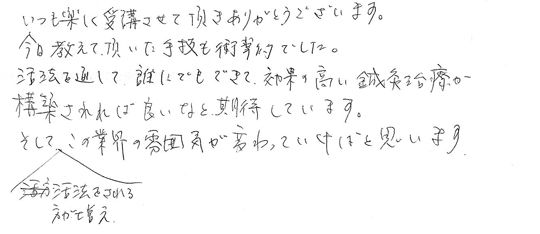 いつも楽しく受講させて頂きありがとうございます。
今日教えて頂いた手技も衝撃的でした。
活法を通して、誰にでもできて、効果の高い鍼灸治療が
構築されれば良いなと期待しています。
そして、この業界の雰囲気が変わっていけばと思います
活法をされる
方が増え